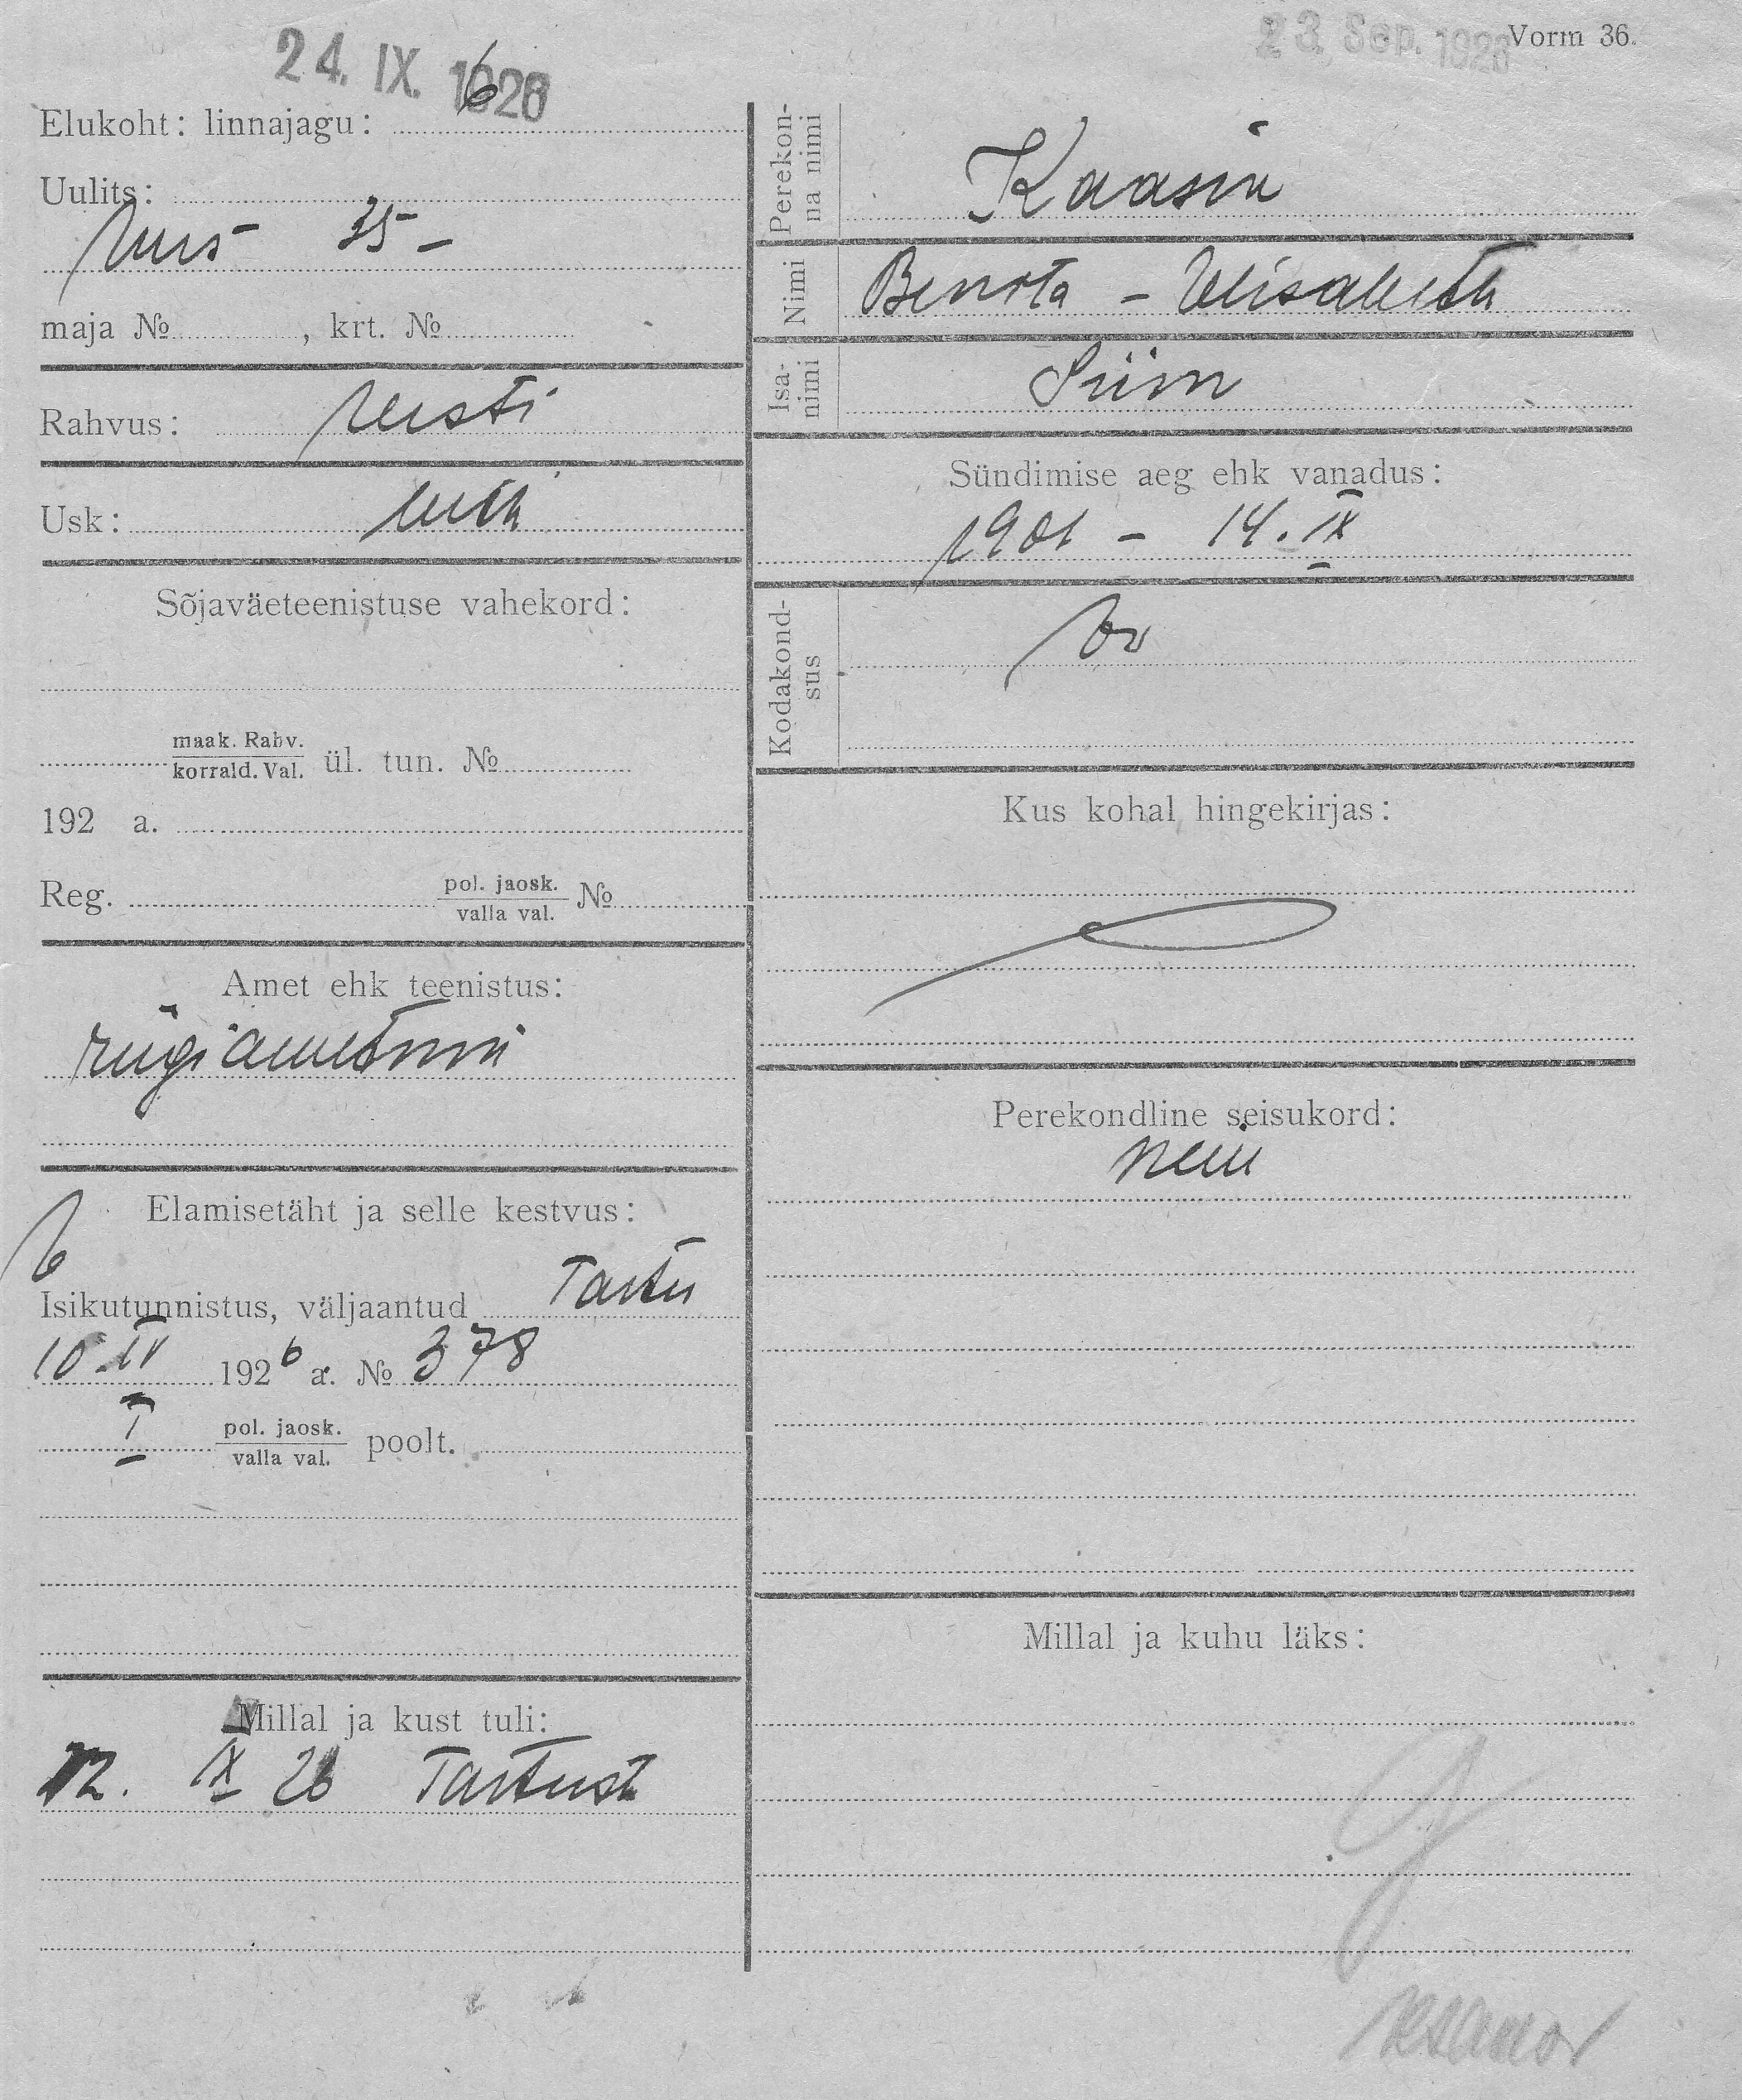 24. IX. 1926
23. Sep. 1926
Vorm 36.
Elukoht: linnajagu:
Uulits:
Uus 35 –
maja №, krt. №
Rahvus: eesti
Usk: luth
Sõjaväeteenistuse vahekord:
maak. Rahv.
korrald. Val. ül. tun. №
192 a.
Reg. pol. jaosk.
valla val. №
Amet ehk teenistus:
riigiametnik
Elamisetäht ja selle kestvus:
Isikutunnistus, väljaantud Tartu
10 IV 1926 a. № 378
I pol. jaosk.
valla val. poolt.
Millal ja kust tuli:
12. IX 26 Tartust
Perekon-
na nimi
Kaasik
Nimi Benita – Elisabeth
Isa-
nimi
Siim
Sündimise aeg ehk vanadus:
1901 – 14. IX
Kodakond-
sus
Kus kohal hingekirjas:
Perekondline seisukord:
neiu
Millal ja kuhu läks: